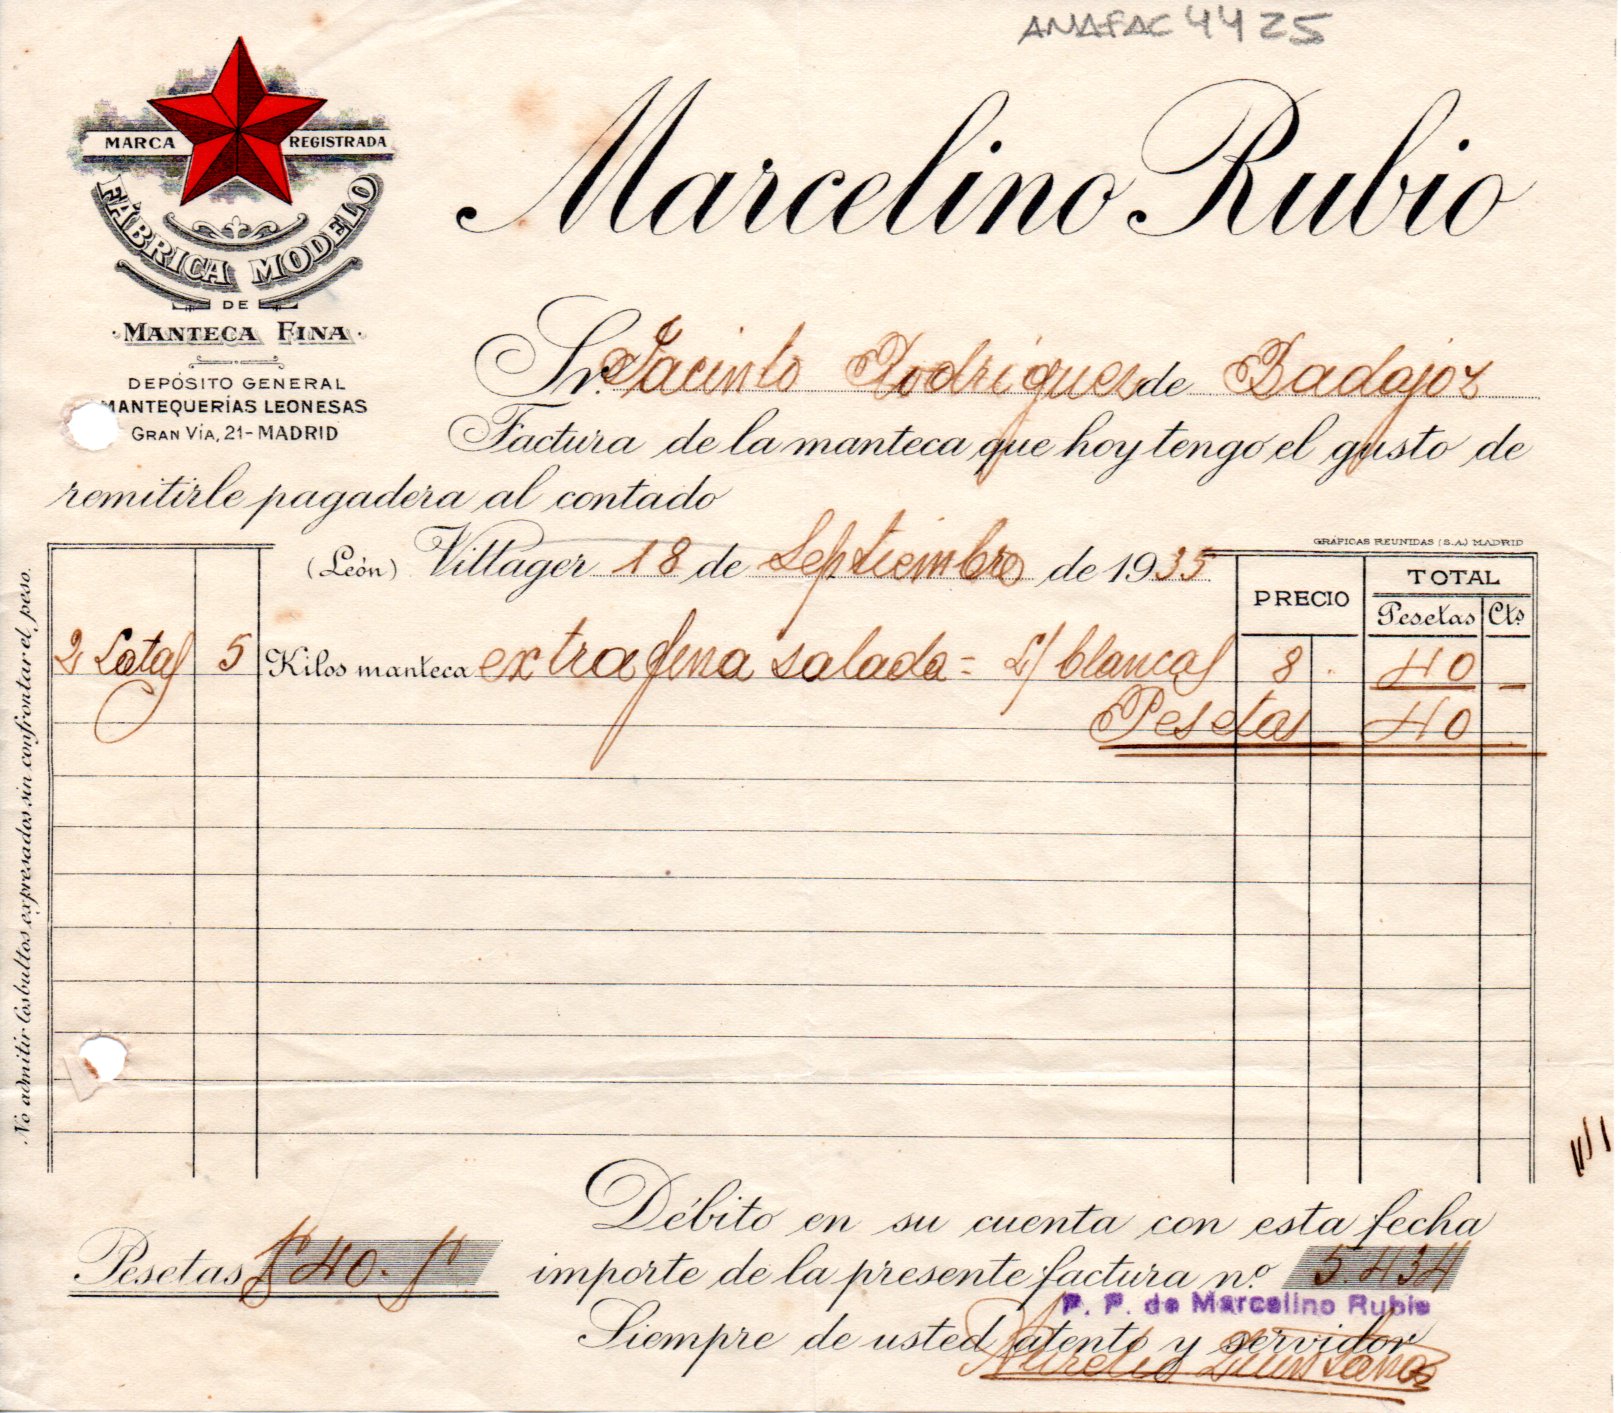 ANAFAC 4425
MARCA REGISTRADA
FÁBRICA MODELO
DE
MANTECA FINA
DEPÓSITO GENERAL
MANTEQUERÍAS LEONESAS
GRAN VÍA, 21-MADRID
Marcelino Rubio
Sr. Jacinto Rodriguez de Badajoz
Factura de la manteca que hoy tengo el gusto de
remitirle pagadera al contado
(León) Villager 18 de Septiembre de 1935
GRÁFICAS REUNIDAS (S.A.) MADRID
PRECIO TOTAL
Pesetas Cts
2 Latas 5 Kilos manteca extra fina salada = L/ blancas 8 . 40 —
Pesetas 40
No admitir los bultos expresados sin confrontar el peso.
Débito en su cuenta con esta fecha
Pesetas 40.
importe de la presente factura nº 5.434
P. P. de Marcelino Rubio
Siempre de usted atento y servidor
Aurelio